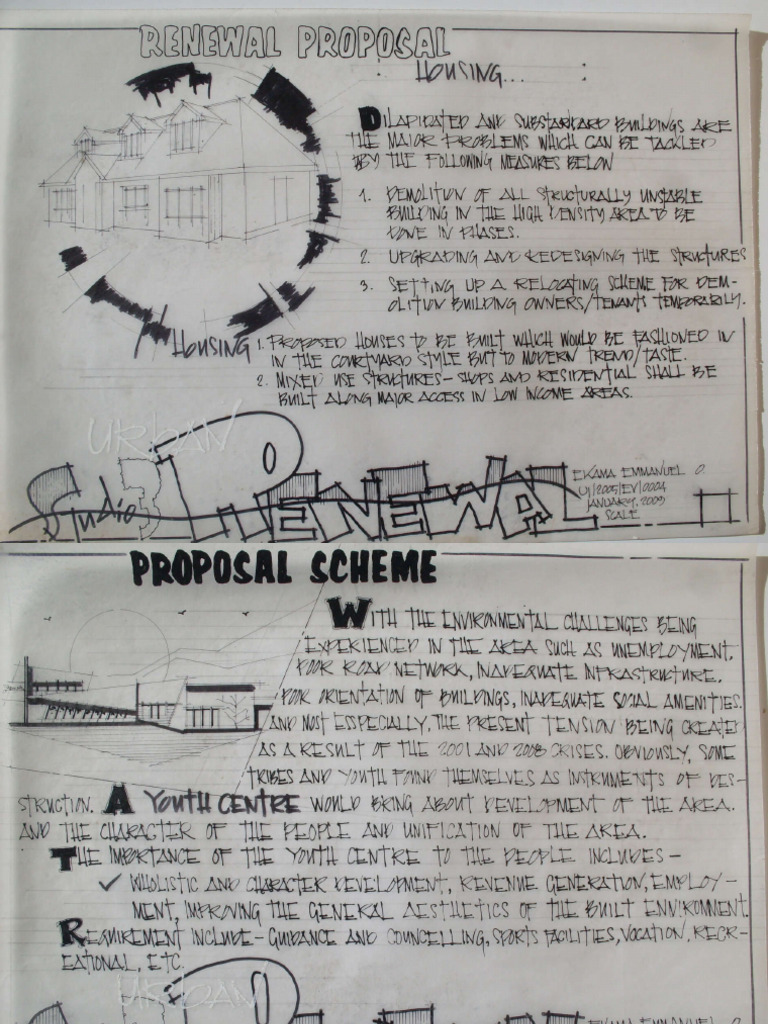 RENEWAL PROPOSAL
HOUSING...
DILAPIDATED AND SUBSTANDARD BUILDINGS ARE
THE MAJOR PROBLEMS WHICH CAN BE TACKLED
BY THE FOLLOWING MEASURES BELOW
1. DEMOLITION OF ALL STRUCTURALLY UNSTABLE
BUILDING IN THE HIGH DENSITY AREA TO BE
DONE IN PHASES.
2. UPGRADING AND REDESIGNING THE STRUCTURES
3. SETTING UP A RELOCATING SCHEME FOR DEM-
OLITION BUILDING OWNERS/TENANTS TEMPORARILY.
HOUSING 1. PROPOSED HOUSES TO BE BUILT WHICH WOULD BE FASHIONED IN
IN THE COURTYARD STYLE BUT TO MODERN TREND/TASTE.
2. MIXED USE STRUCTURES - SHOPS AND RESIDENTIAL SHALL BE
BUILT ALONG MAJOR ACCESS IN LOW INCOME AREAS.
URBAN
Studio 3 RENEWAL
EKAMA EMMANUEL O.
UJ/2005/EV/0004
JANUARY, 2009
SCALE
PROPOSAL SCHEME
WITH THE ENVIRONMENTAL CHALLENGES BEING
EXPERIENCED IN THE AREA SUCH AS UNEMPLOYMENT,
POOR ROAD NETWORK, INADEQUATE INFRASTRUCTURE.
POOR ORIENTATION OF BUILDINGS, INADEQUATE SOCIAL AMENITIES.
AND MOST ESSPECIALLY, THE PRESENT TENSION BEING CREATED
AS A RESULT OF THE 2001 AND 2008 CRISES. OBVIOUSLY, SOME
TRIBES AND YOUTH FOUND THEMSELVES AS INSTRUMENTS OF DES-
TRUCTION. A YOUTH CENTRE WOULD BRING ABOUT DEVELOPMENT OF THE AREA.
AND THE CHARACTER OF THE PEOPLE AND UNIFICATION OF THE AREA.
THE IMPORTANCE OF THE YOUTH CENTRE TO THE PEOPLE INCLUDES -
✓ WHOLISTIC AND CHARACTER DEVELOPMENT, REVENUE GENERATION, EMPLOY-
MENT, IMPROVING THE GENERAL AESTHETICS OF THE BUILT ENVIRONMENT.
REQUIREMENT INCLUDE - GUIDANCE AND COUNCELLING, SPORTS FACILITIES, VOCATION, RECR-
EATIONAL, ETC.
URBAN
EKAMA EMMANUEL O.